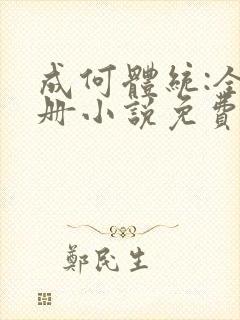 成何體統:全
册小說免費
鄭民生